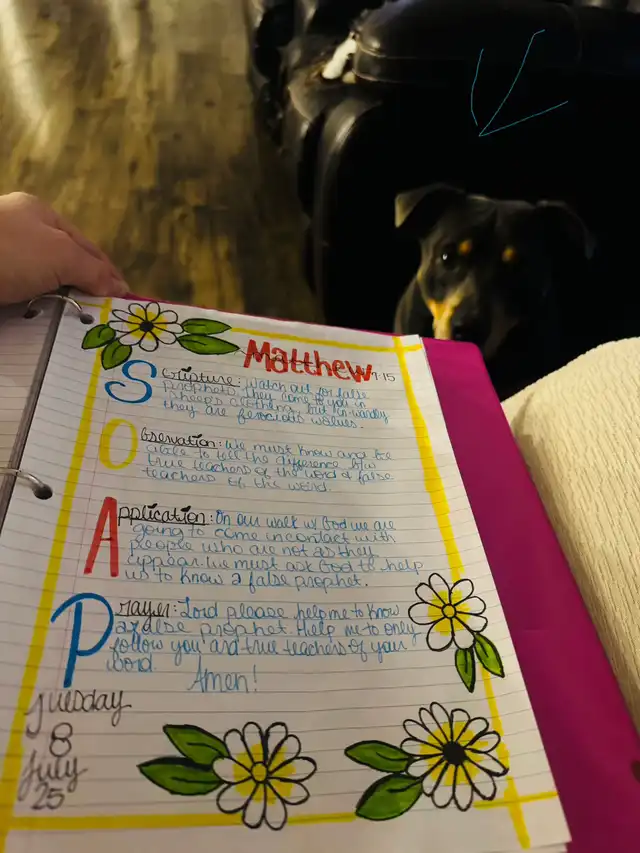 Matthew 7:15
Scripture: Watch out for false
prophets. They come to you in
sheep's clothing, but inwardly
they are ferocious wolves.
Observation: We must know and be
able to tell the difference b/w
true teachers of the word & false
teachers of the word.
Application: On our walk w/ God we are
going to come in contact with
people who are not as they
appear. We must ask God to help
us to know a false prophet.
Prayer: Lord please help me to know
a false prophet. Help me to only
follow you and true teachers of your
word.
Amen!
Tuesday
8
July
25